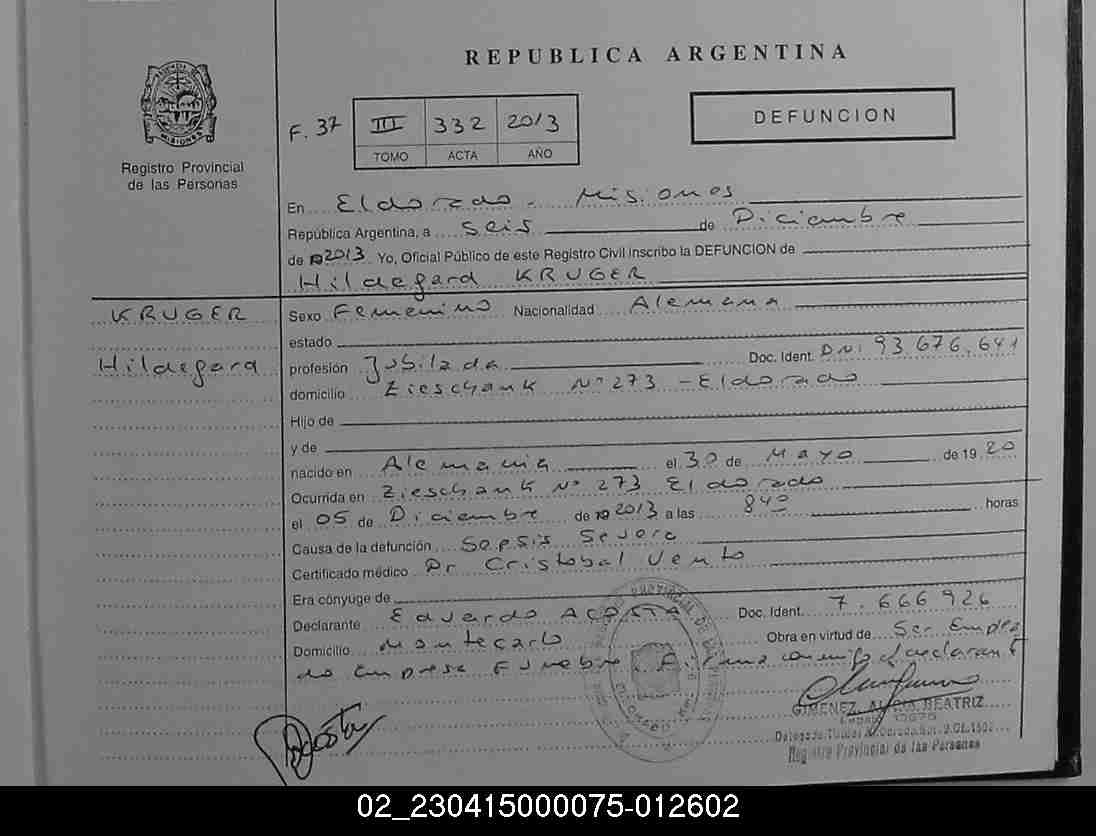 REPUBLICA ARGENTINA
MISIONES
Registro Provincial
de las Personas
F. 37 III 332 2013
TOMO ACTA AÑO
DEFUNCION
En Eldorado - Misiones
República Argentina, a seis de Diciembre
de 2013. Yo, Oficial Público de este Registro Civil inscribo la DEFUNCION de
Hildegard KRUGER
KRUGER
Hildegard
Sexo Femenino Nacionalidad Alemana
estado
profesión Jubilada Doc. Ident. DNI 93.676.641
domicilio Zieschank Nº 273 - Eldorado
Hijo de
y de
nacido en Alemania el 30 de Mayo de 19 20
Ocurrida en Zieschank Nº 273 Eldorado
el 05 de Diciembre de 2013 a las 8 40 horas
Causa de la defunción Sepsis Severa
Certificado médico Dr Cristobal Vento
Era cónyuge de
Declarante Eduardo ACOSTA Doc. Ident. 7.666926
Domicilio Montecarlo Obra en virtud de Ser Emplea
do Empresa Funebre. Firma conmigo el declarante
Acosta
GIMENEZ, ALICIA BEATRIZ
Registro Provincial de las Personas
02_230415000075-012602